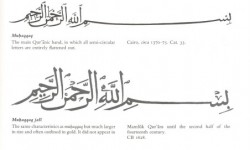 بسم الله الرحمن الرحيم
Muḥaqqaq
The main Qur'ānic hand, in which all semi-circular
letters are entirely flattened out.
Cairo, circa 1370-75. Cat. 33.
بسم الله الرحمن الرحيم
Muḥaqqaq jalī
The same characteristics as muḥaqqaq but much larger
in size and often outlined in gold. It did not appear in
Mamlūk Qur'āns until the second half of the
fourteenth century.